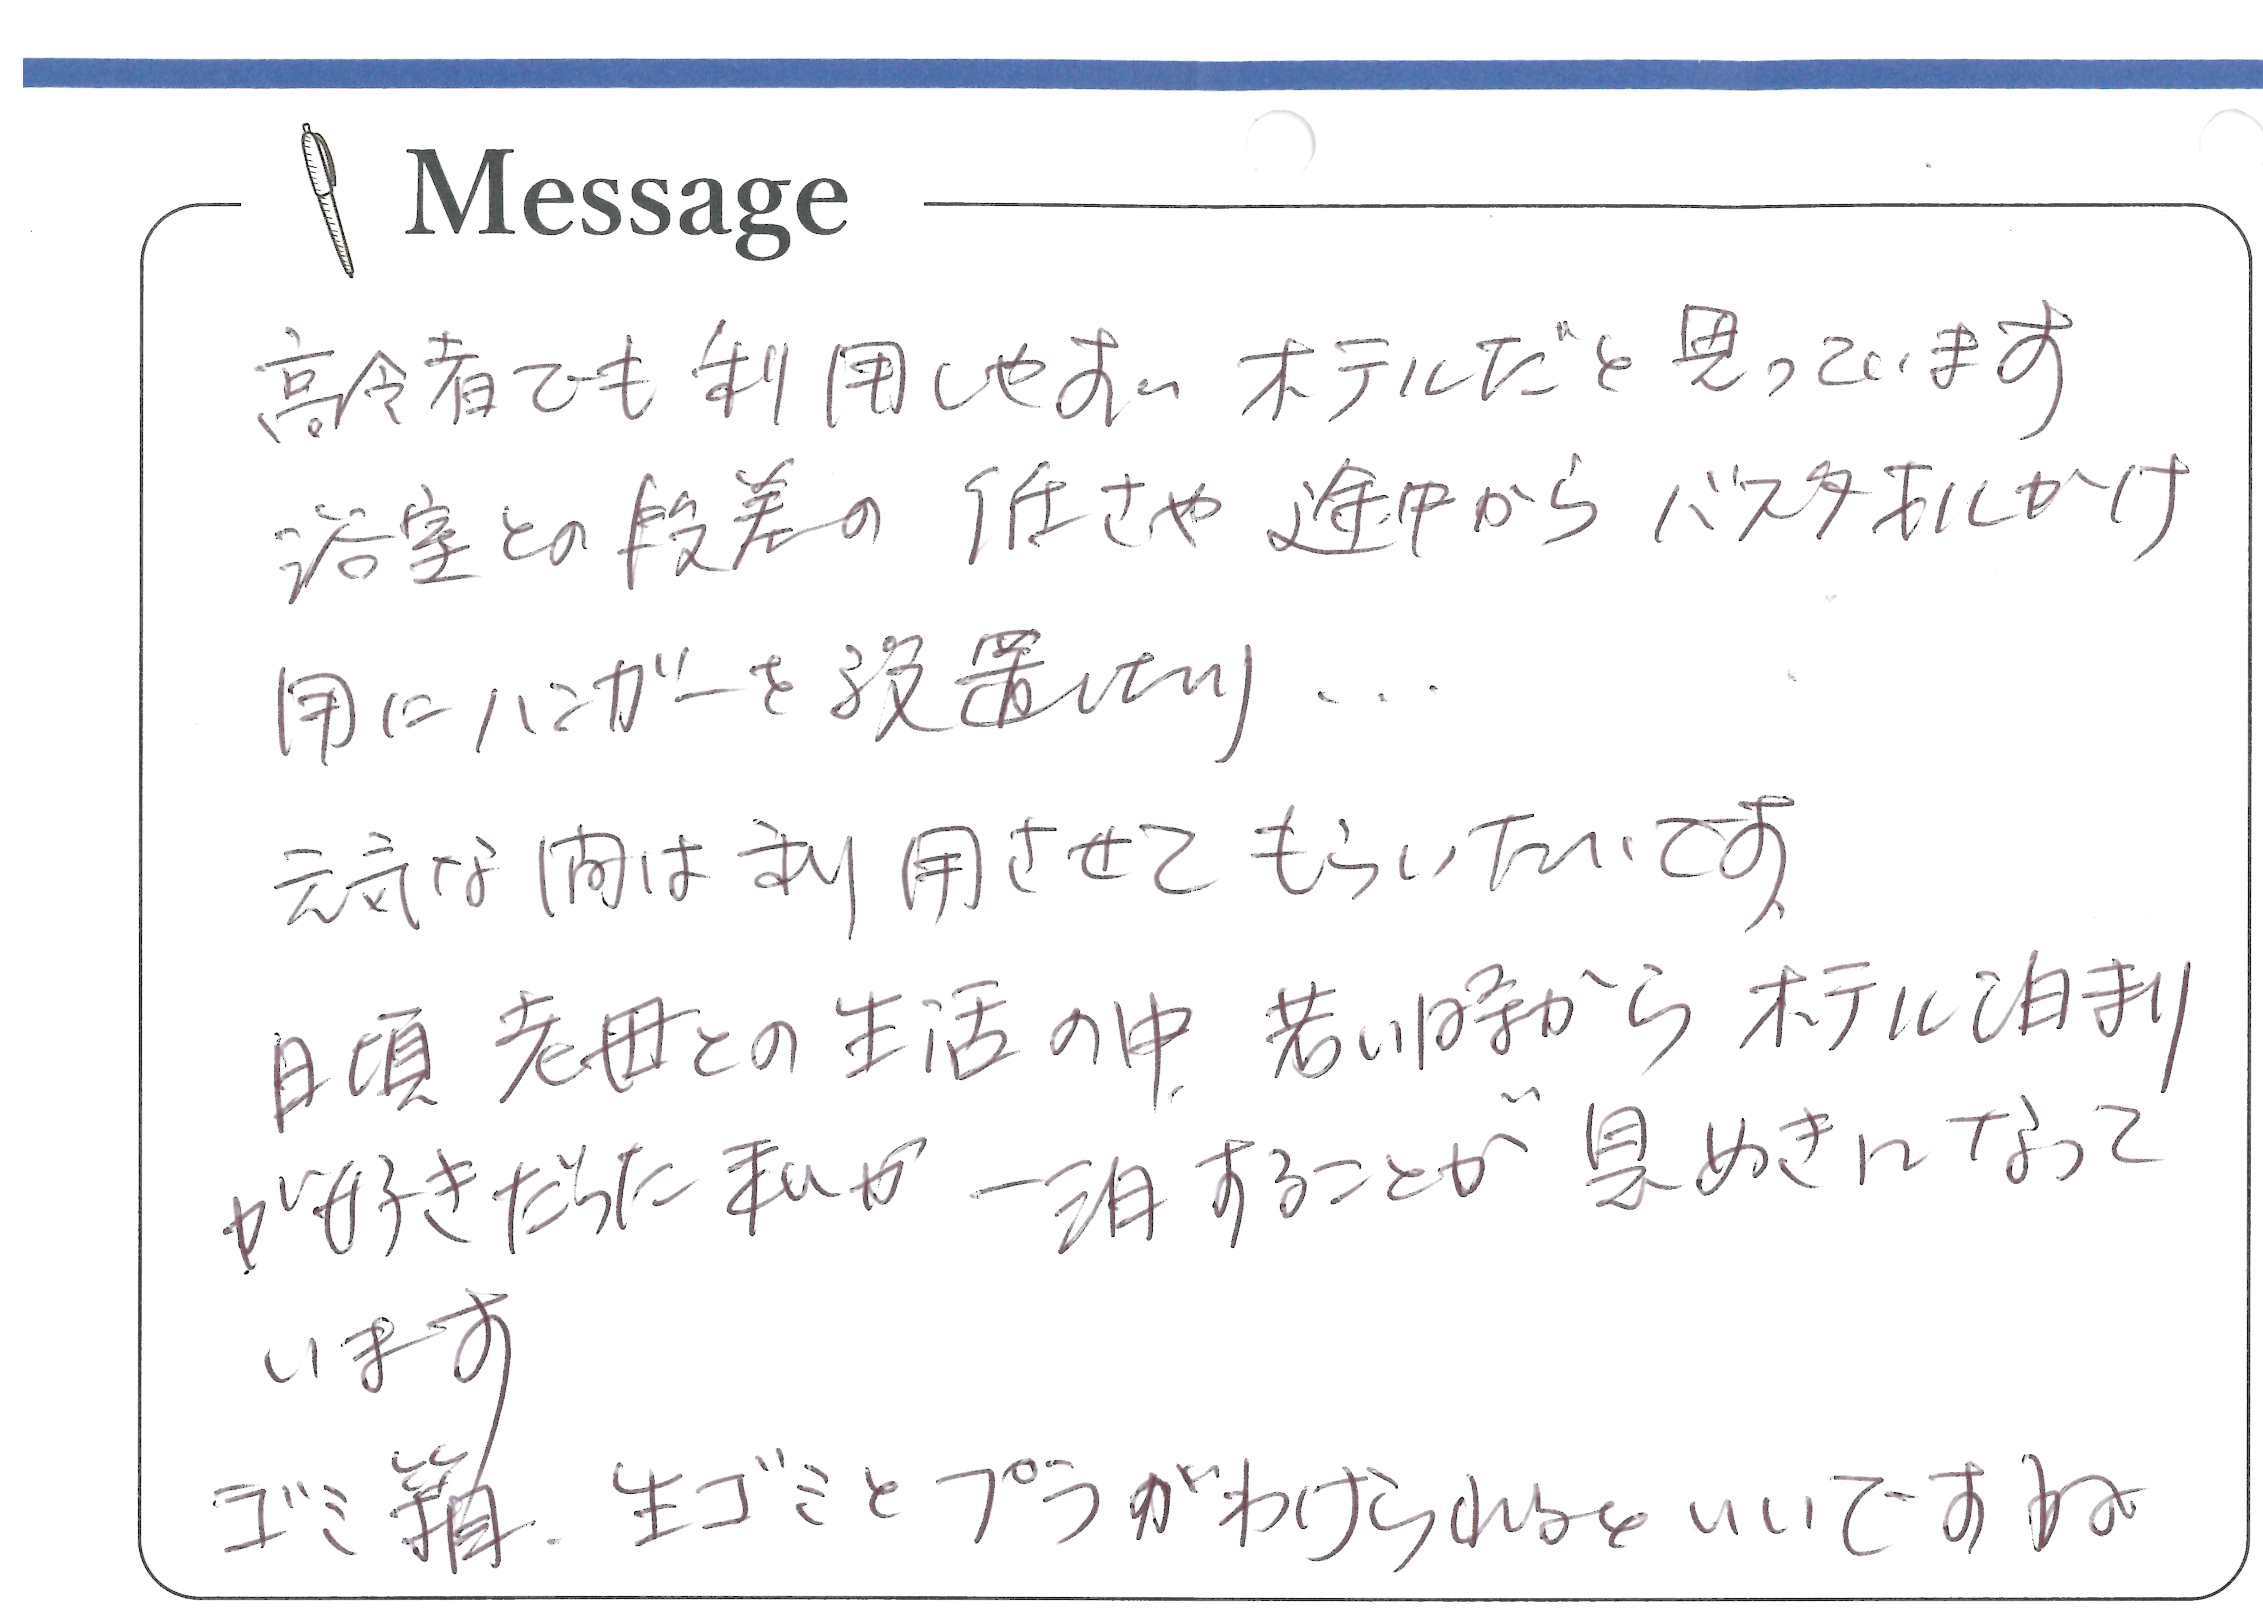 Message
高令者でも利用しやすい ホテルだと思っています
浴室との段差の 低さや 途中から バスタオルかけ
用にハンガーを設置したり...
元気な内は利用させて もらいたいです
日頃 老母との生活の中、若い時から ホテル泊まり
が好きだった 私が 一泊することが 息ぬきになって
います
ゴミ箱、生ゴミと プラがわけられると いいですね